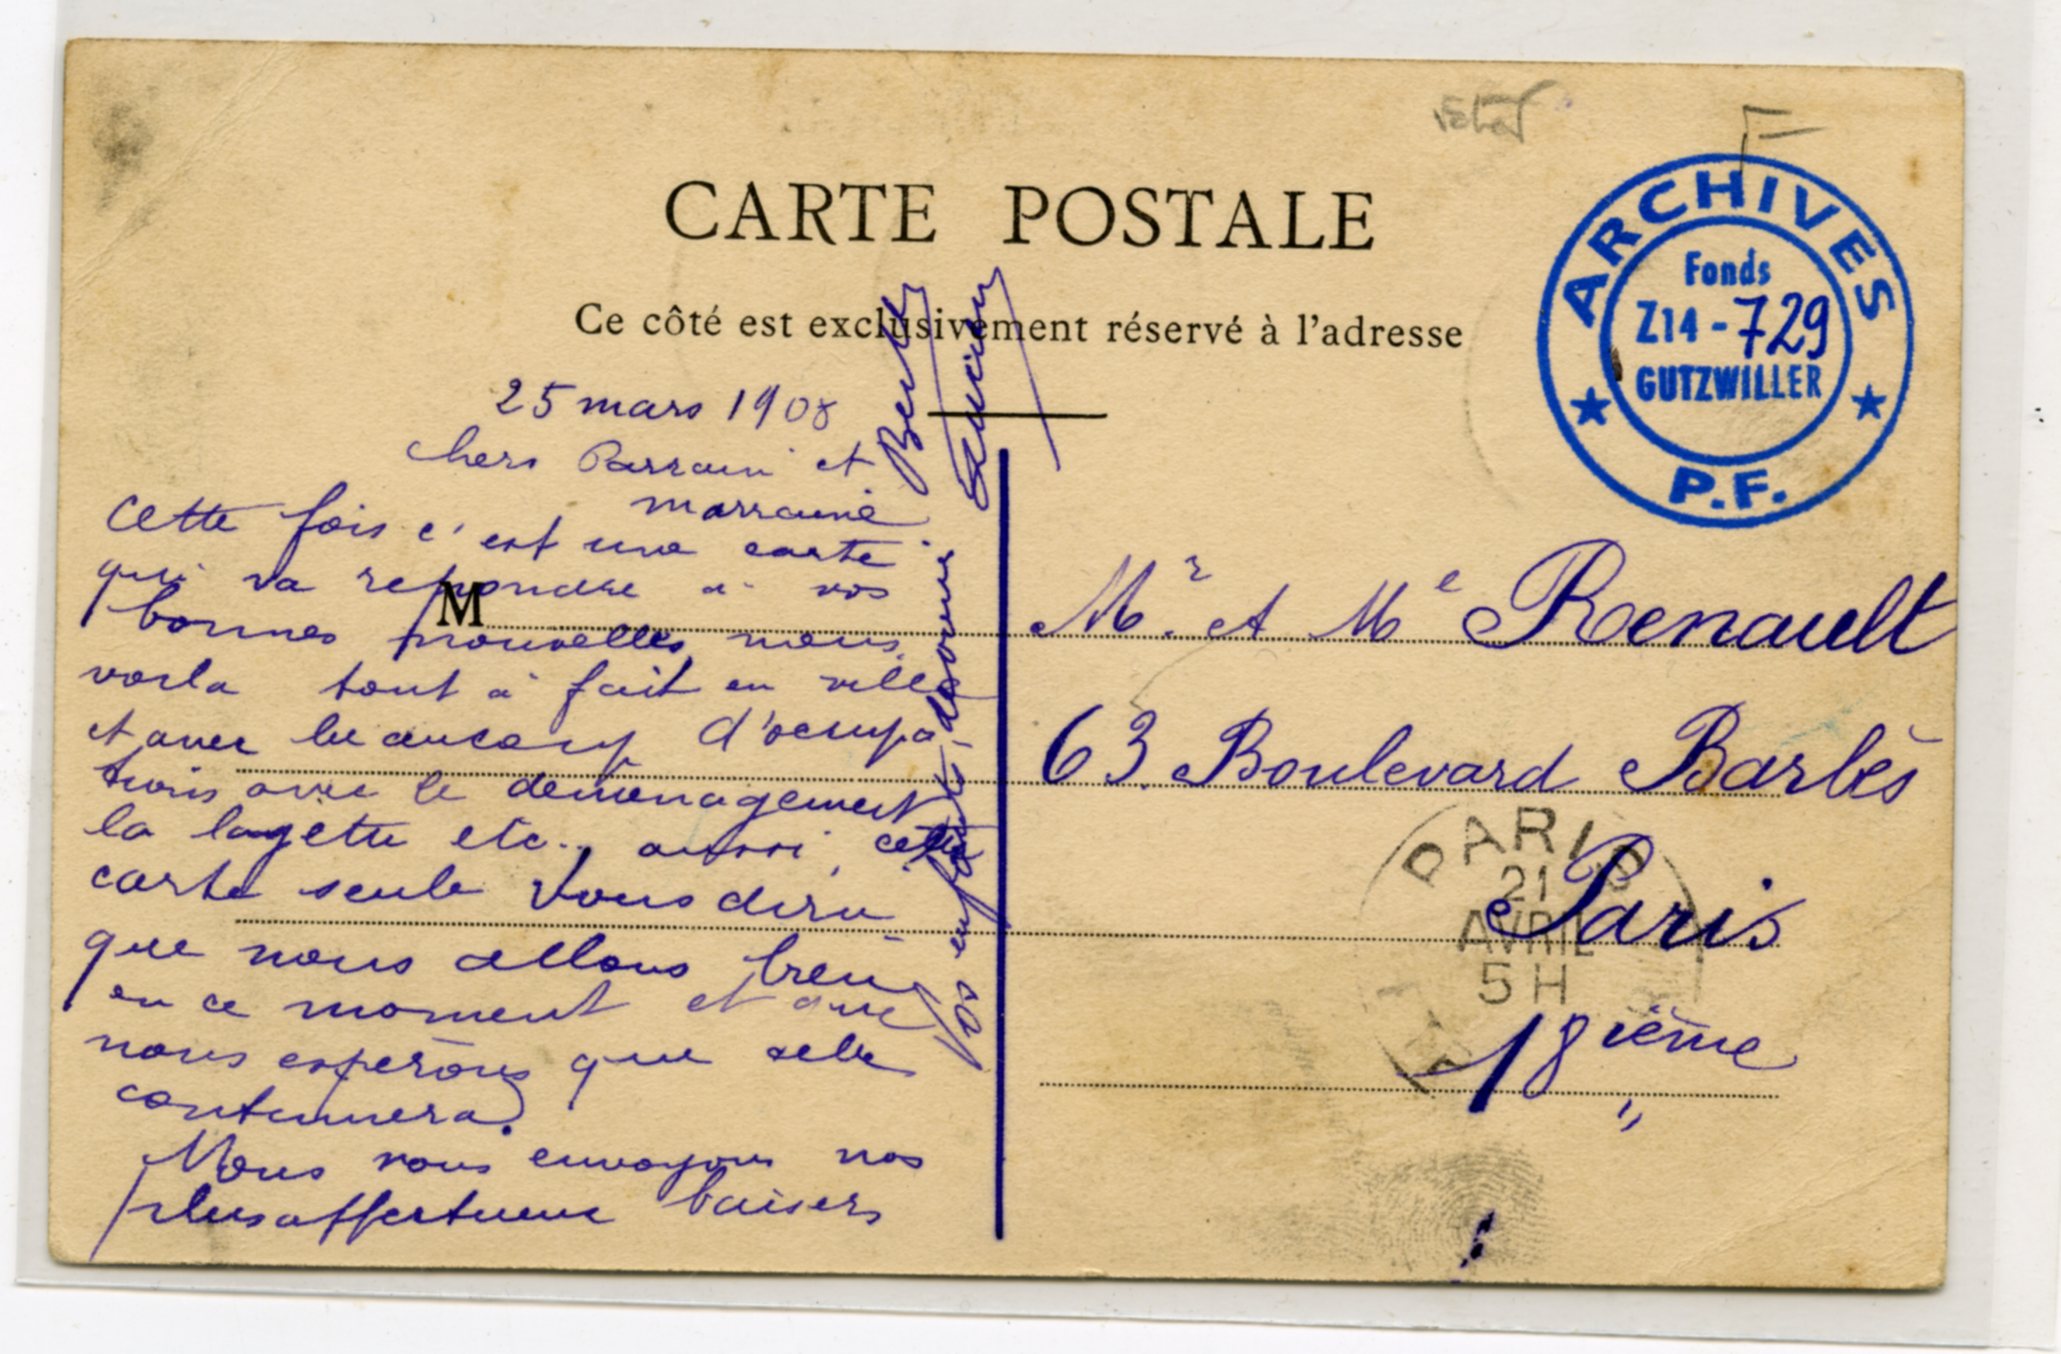 CARTE POSTALE
Ce côté est exclusivement réservé à l'adresse
ARCHIVES
Fonds
Z14-729
GUTZWILLER
P.F.
25 mars 1908
chers Parrain et
marraine
Cette fois c'est une carte
qui va repondre a vos
bonnes nouvelles nous
voila tout à fait en ville
et avec beaucoup d'occupa-
tions avec le demenagement
la layette etc.. aussi cette
carte seule vous dira
que nous allons bien
en ce moment et que
nous esperons que cela
continuera.
Nous vous envoyons nos
plus affectueux baisers
Vos enfants devoués
Berthe
Lucien
M
Mr. et Me Renault
63 Boulevard Barbès
Paris
18 ième
PARIS
21
AVRIL
5H